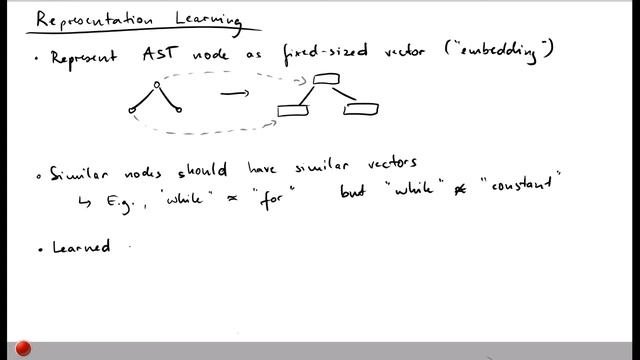 Representation Learning
• Represent AST node as fixed-sized vector ("embedding")
• Similar nodes should have similar vectors
↳ E.g., "while" ≈ "for" but "while" ≉ "constant"
• Learned